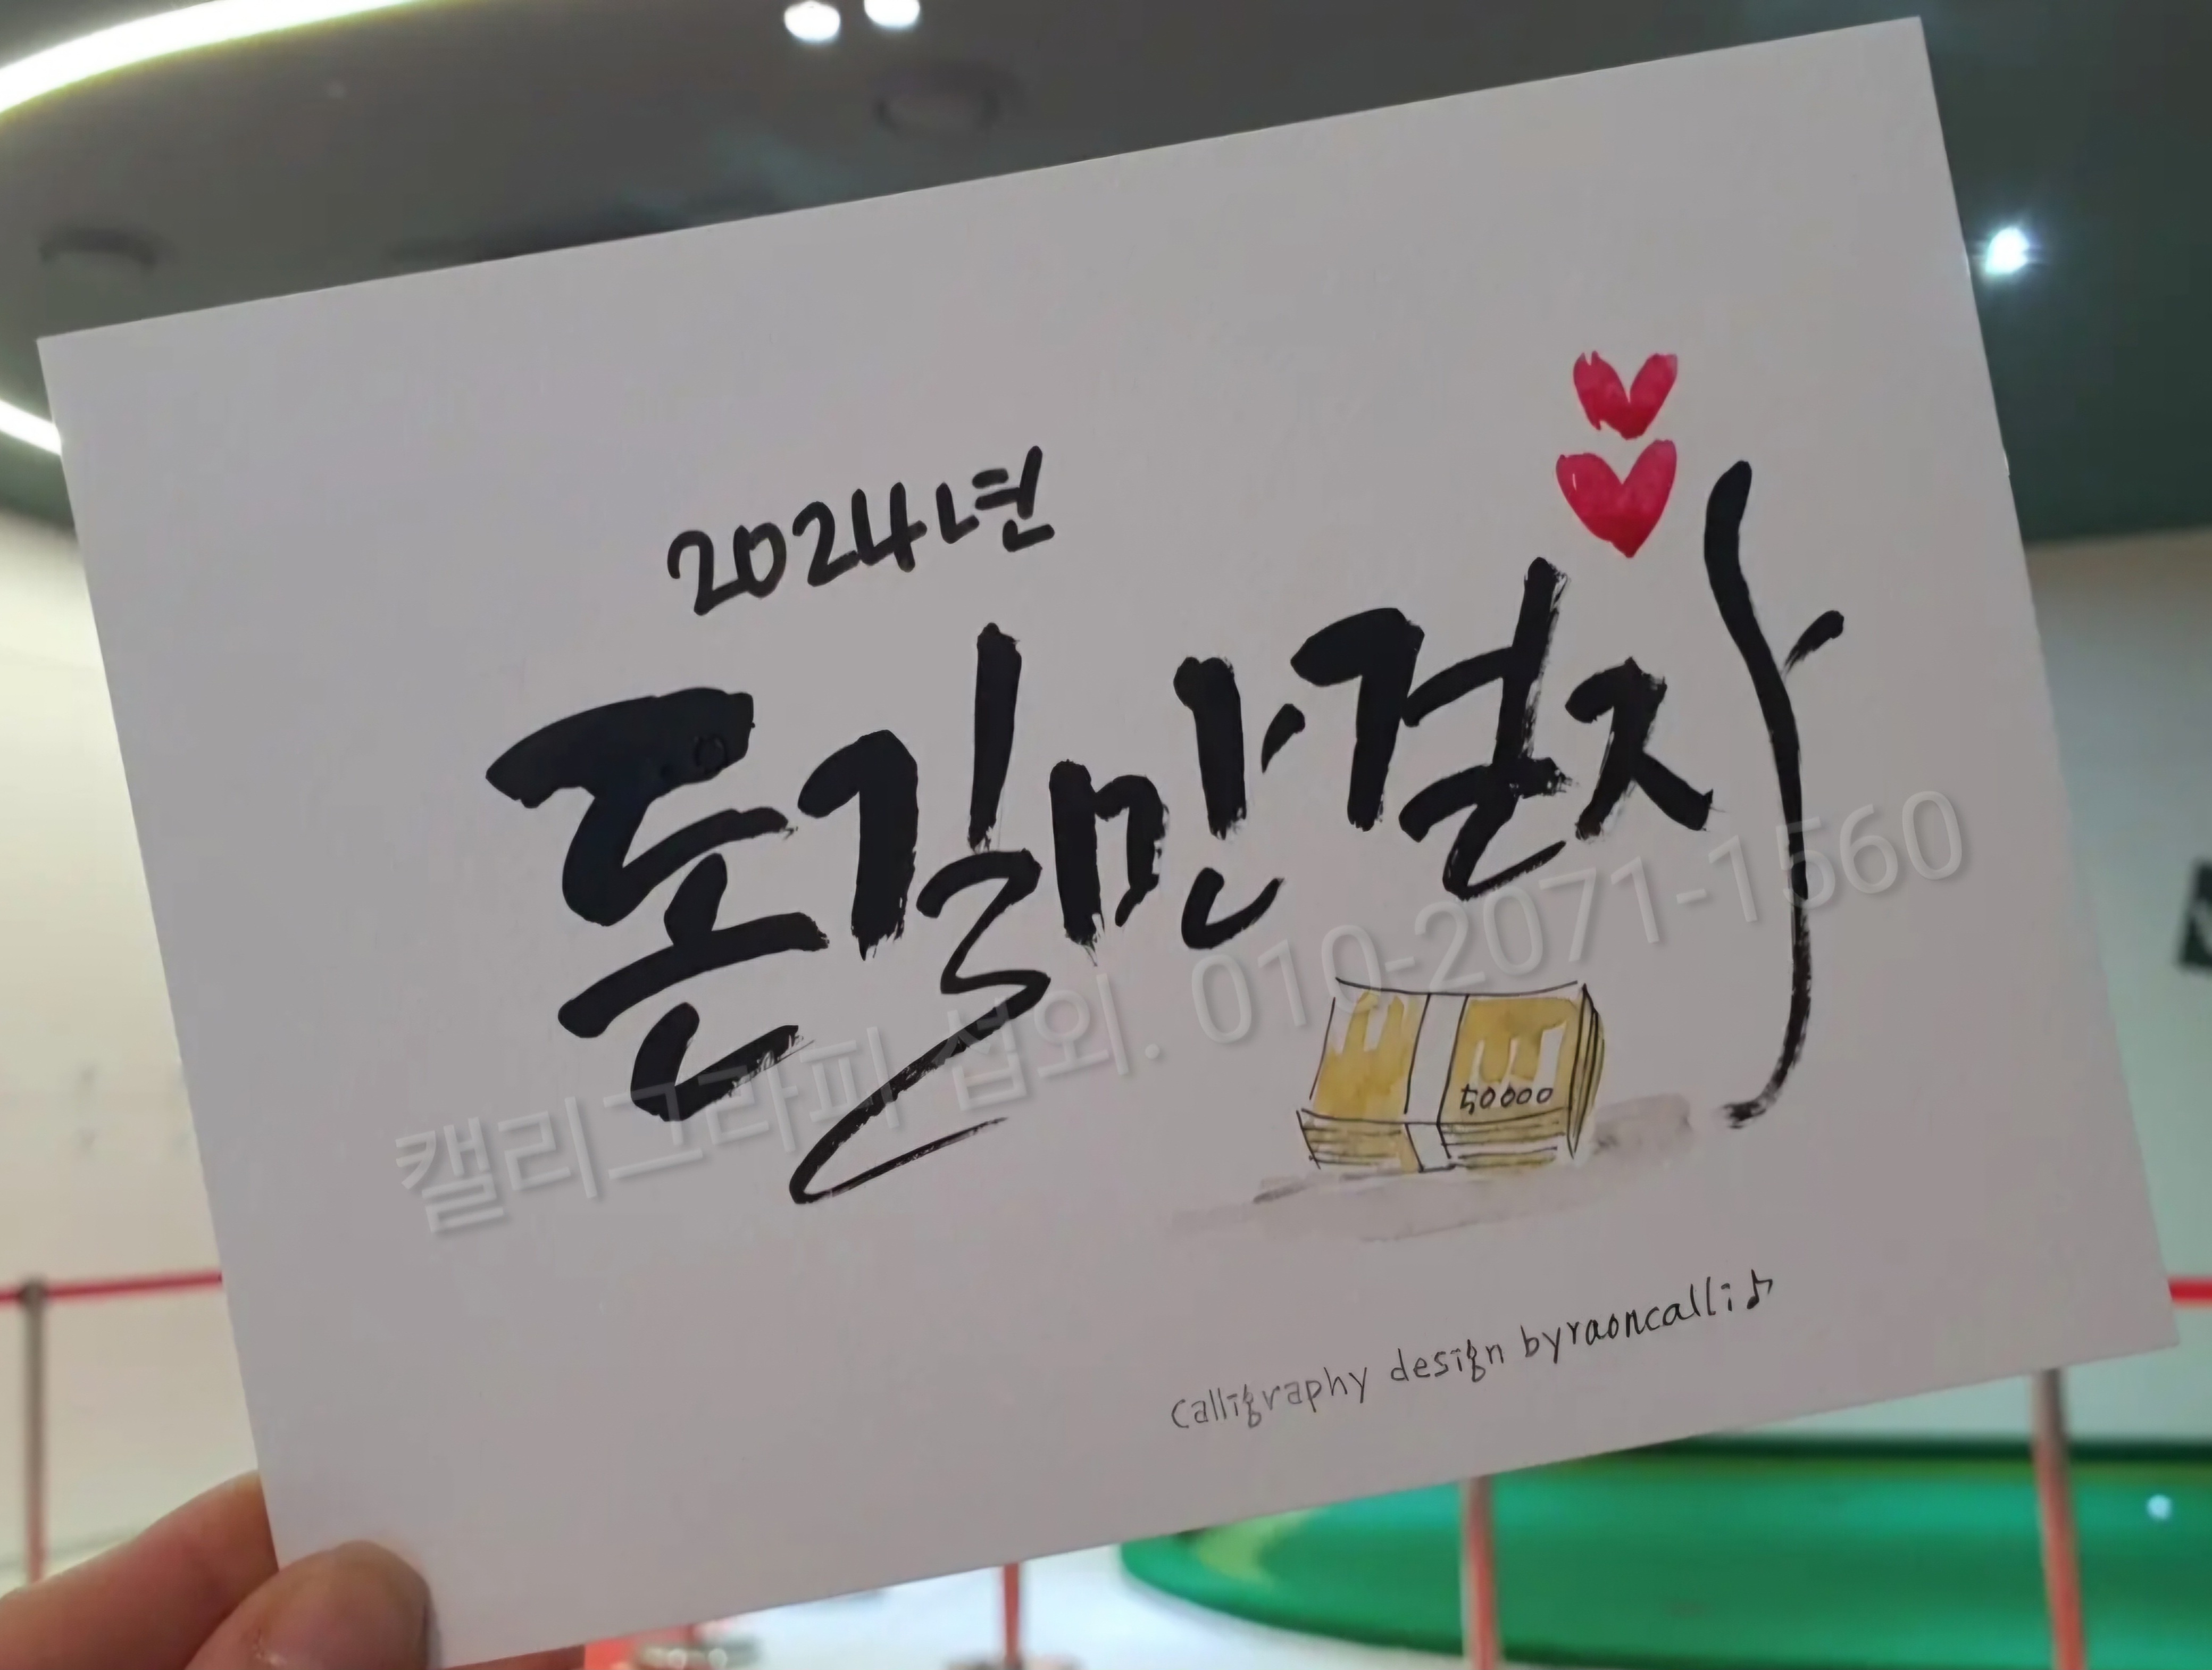 2024년
돈길만 걷자
50000
캘리그라피 섭외. 010-2071-1560
Calligraphy design by raoncalli♪